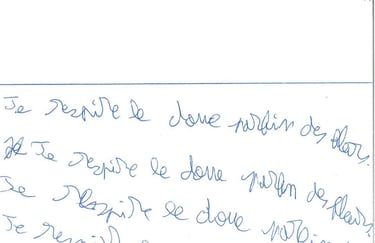 Je respire le doux parfum des fleurs.
Je Je respire le doux parfum des fleurs.
Je respire le doux parfum
Je respire